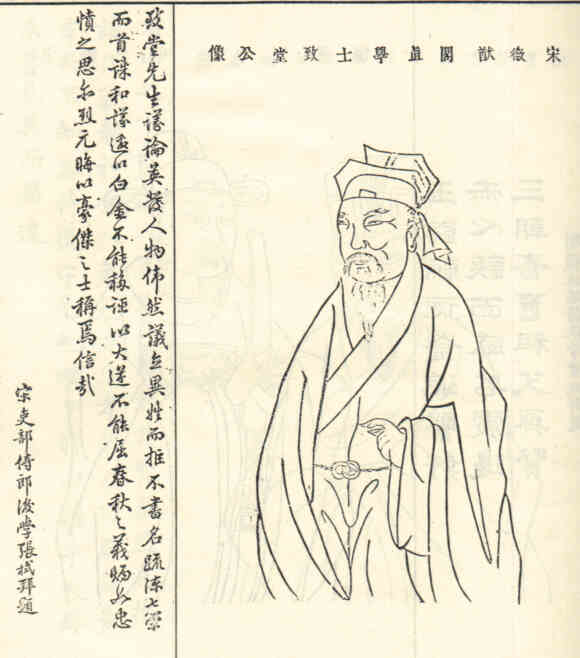 宋徽猷閣直學士致堂公像
致堂先生議論英發人物偉然議立異姓而拒不書名疏陳七策
而首誅和議遺以白金不能移誣以大逆不能屈春秋之義忠
憤之思尔烈元晦以豪傑之士稱焉信哉
宋吏部侍郎後學張栻拜題